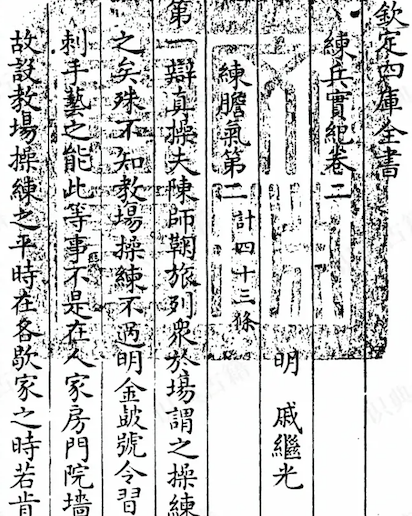 欽定四庫全書
練兵實紀卷二
明 戚繼光
練膽氣第二 計四十三條
第一辯真操夫陳師鞠旅列衆於場謂之操練
之矣殊不知教場操練不過明金鼓號令習
刺手藝之能此等事不是在人家房門院墻
故設教場操練之平時在各歇家之時若肯